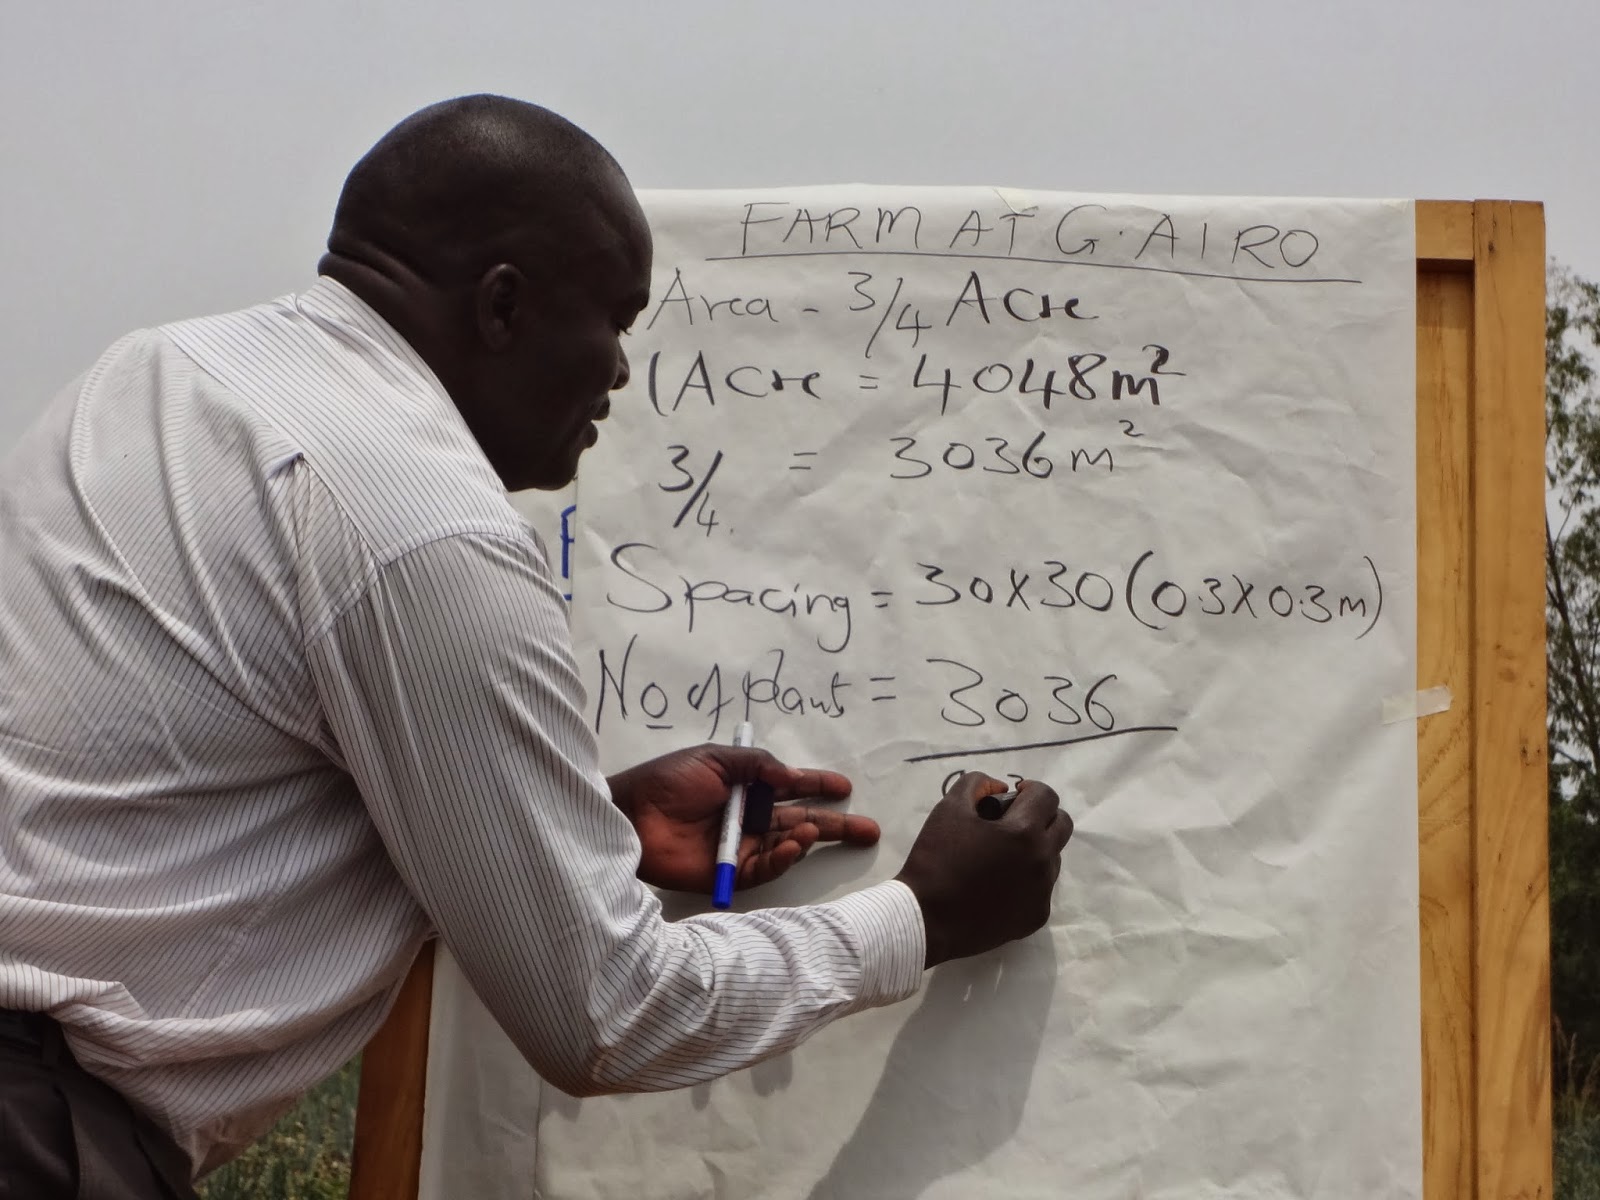 FARM AT G. AIRO
Area - 3/4 Acre
1 Acre = 4048m²
3/4 = 3036m²
Spacing = 30x30 (0.3x0.3m)
No of plants = 3036